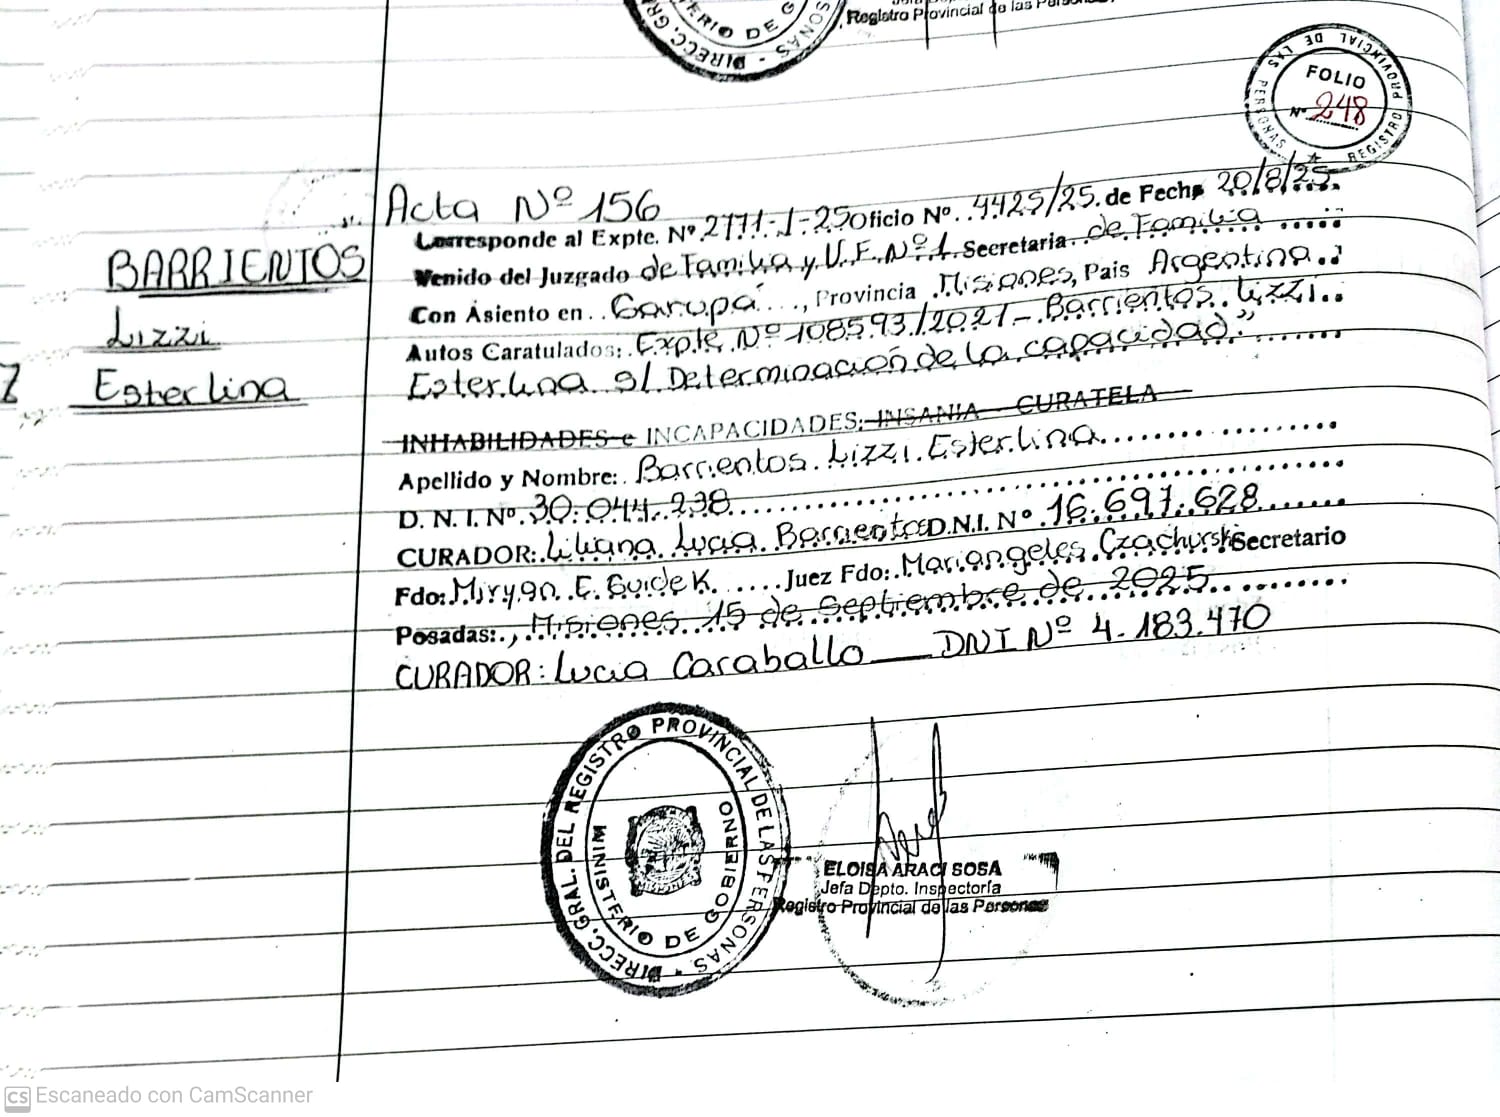 DIRECC. GRAL. PERSONAS
MINISTERIO DE GO
Registro Provincial de las Personas
REGISTRO PROVINCIAL DE LAS PERSONAS
FOLIO
Nº 248
Acta Nº 156
BARRIENTOS
Lizzi
Esterlina
Corresponde al Expte. Nº. 2771-I-25 Oficio Nº. 4425/25. de Fecha 20/8/25.
Venido del Juzgado de Familia y V.F. Nº 1. Secretaria. de Familia
Con Asiento en.. Garupá ..., Provincia Misiones, Pais Argentina..
Autos Caratulados: Expte Nº 108593/2021 - Barrientos Lizzi..
Esterlina s/ Determinación de la capacidad."
INHABILIDADES e INCAPACIDADES: INSANIA - CURATELA
Apellido y Nombre: Barrientos Lizzi Esterlina
D. N. I. Nº. 30.044.238
CURADOR: Liliana Lucia Barrientos D.N.I. Nº 16.697.628
Fdo: Miryan E. Guidek .... Juez Fdo: Mariangeles Czachurski Secretario
Posadas:., Misiones 15 de Septiembre de 2025
CURADOR: Lucia Caraballo — DNI Nº 4.183.470
DIRECC. GRAL. DEL REGISTRO PROVINCIAL DE LAS PERSONAS
MINISTERIO DE GOBIERNO
ELOISA ARACI SOSA
Jefa Depto. Inspectoría
Registro Provincial de las Personas
CS Escaneado con CamScanner